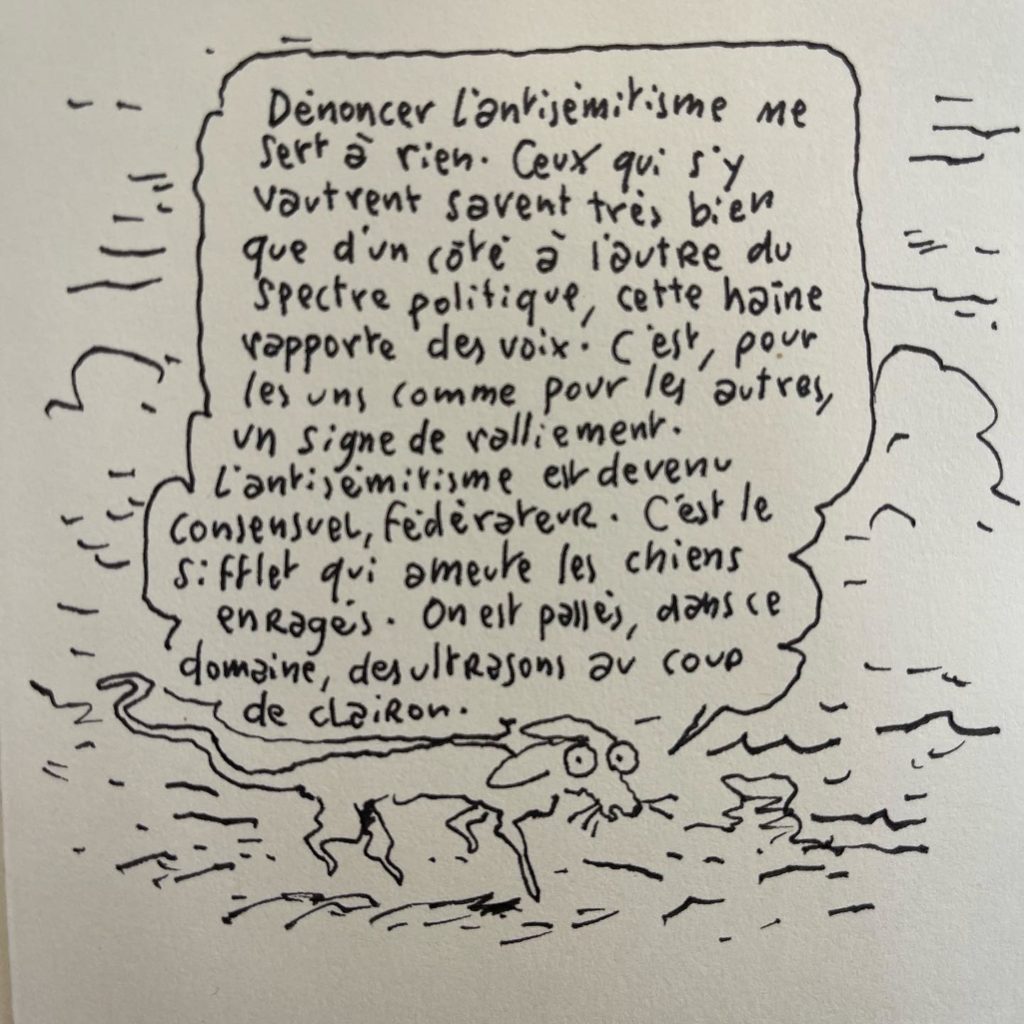 Dénoncer l'antisémitisme ne
sert à rien. Ceux qui s'y
vautrent savent très bien
que d'un côté à l'autre du
spectre politique, cette haine
rapporte des voix. C'est, pour
les uns comme pour les autres,
un signe de ralliement.
L'antisémitisme est devenu
consensuel, fédérateur. C'est le
sifflet qui ameute les chiens
enragés. On est passés, dans ce
domaine, des ultrasons au coup
de clairon.